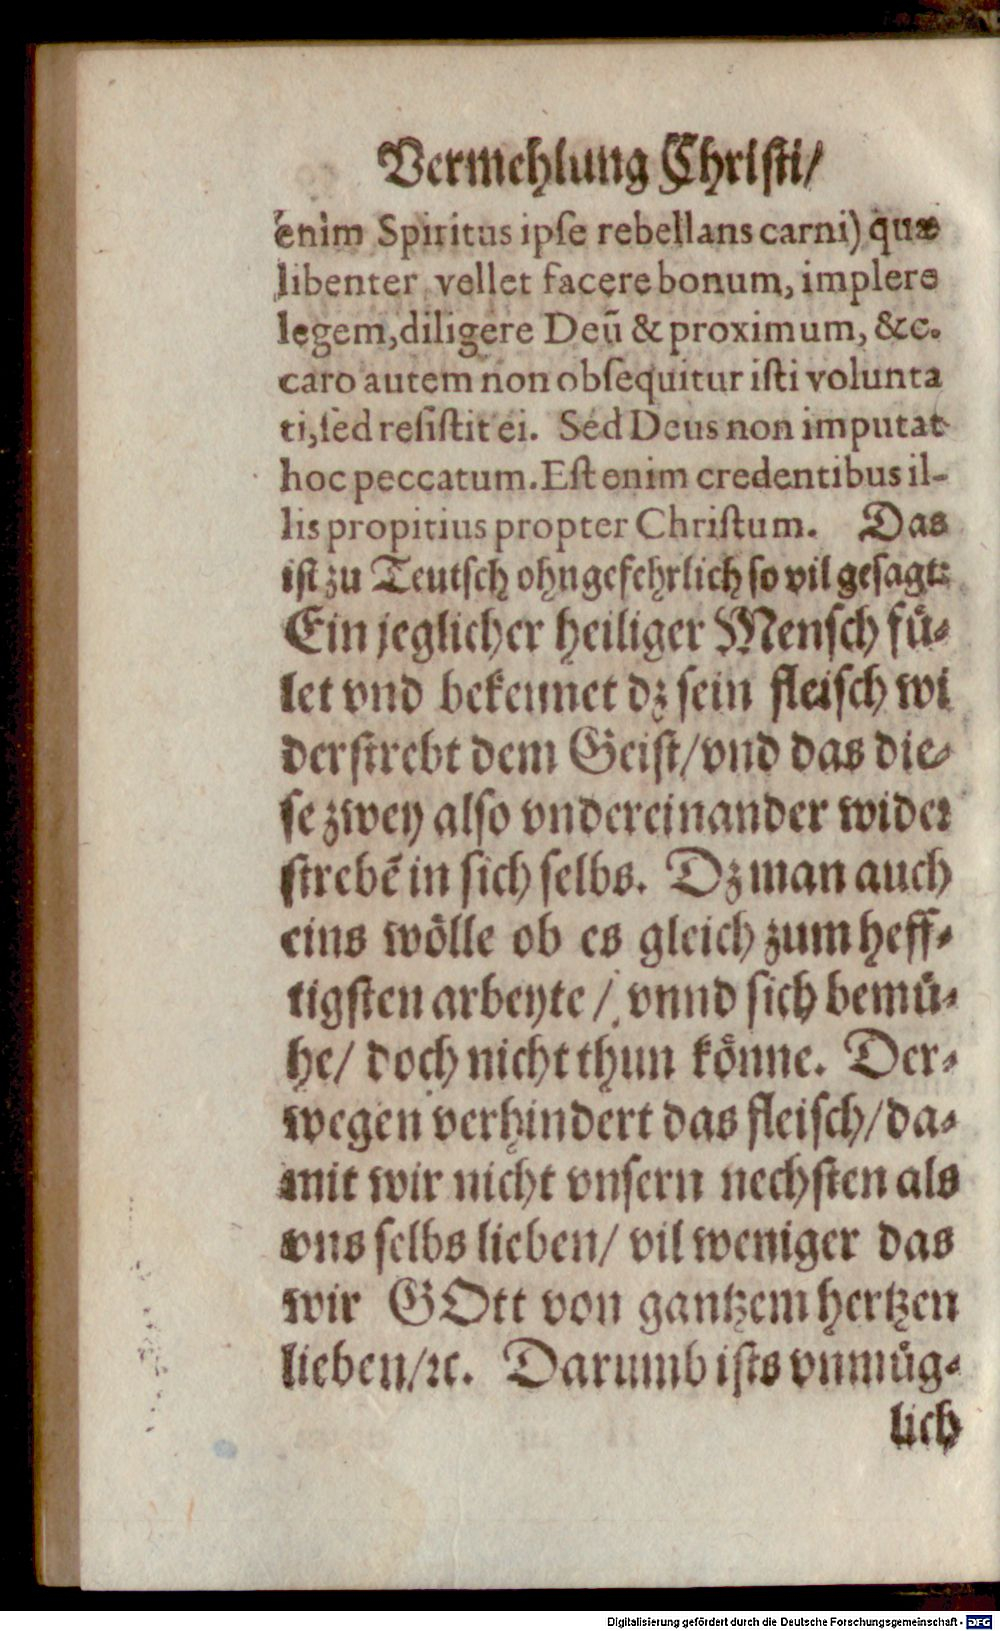 Vermehlung Christi/
enim Spiritus ipſe rebellans carni) quæ
libenter vellet facere bonum, implere
legem, diligere Deũ & proximum, &c.
caro autem non obſequitur iſti volunta
ti, ſed reſiſtit ei. Sed Deus non imputat
hoc peccatum. Eſt enim credentibus il-
lis propitius propter Chriſtum. Das
iſt zu Teutſch ohngefehrlich ſo vil geſagt:
Ein jeglicher heiliger Menſch fuͤ-
let vnd bekennet dz ſein fleiſch wi
derſtrebt dem Geiſt/ vnd das die-
ſe zwey alſo vndereinander wider
ſtrebẽ in ſich ſelbs. Dz man auch
eins woͤlle ob es gleich zum heff-
tigſten arbeyte/ vnnd ſich bemuͤ-
he/ doch nicht thun koͤnne. Der-
wegen verhindert das fleiſch/ da-
mit wir nicht vnſern nechſten als
vns ſelbs lieben/ vil weniger das
wir GOtt von gantzem hertzen
lieben/ ꝛc. Darumb iſts vnmuͤg-
lich
Digitalisierung gefördert durch die Deutsche Forschungsgemeinschaft - DFG